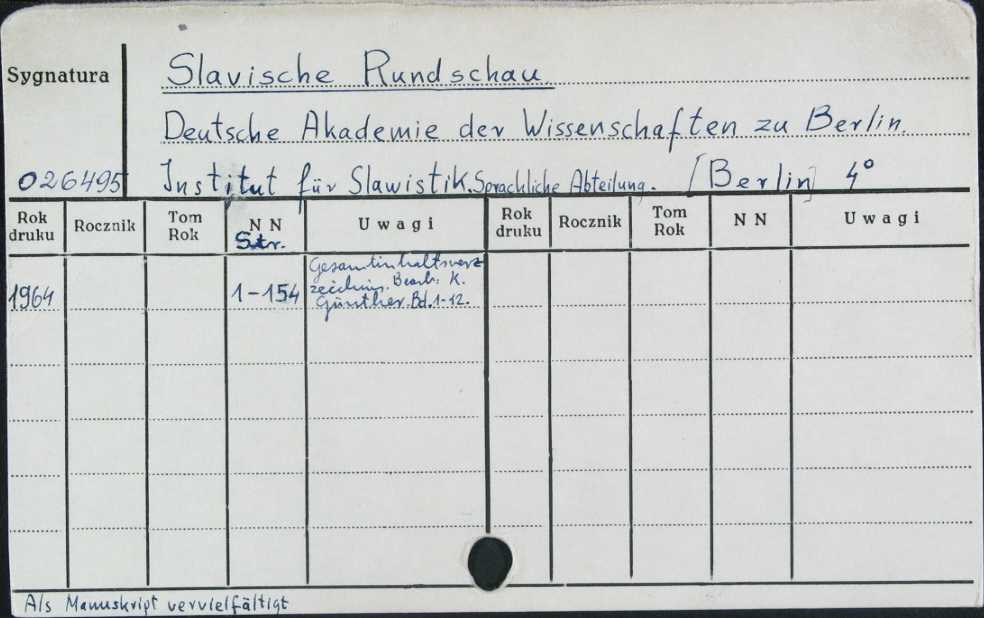 Sygnatura
Slavische Rundschau
Deutsche Akademie der Wissenschaften zu Berlin.
026495
Institut für Slawistik. Sprachliche Abteilung. [Berlin] 4°
Rok druku
Rocznik
Tom Rok
N N
Str.
Uwagi
Rok druku
Rocznik
Tom Rok
N N
Uwagi
1964
1-154
Gesamtinhaltsverz
zeichnis. Bearb. K.
Günther. Bd. 1-12.
Als Manuskript vervielfältigt